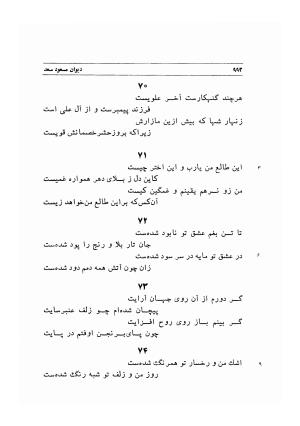 ۹۹۴ دیوان مسعود سعد
۷۰
هرچند گنهکارست آخر علویست
فرزند پیمبرست و از آل علی است
زنهار شها که بیش ازین مازارش
زیرا که بروز حشر خصمانش قویست
۷۱
این طالع من یارب و این اختر چیست ۳
کاین دل ز بلای دهر همواره غمیست
من زو نرهم یقینم و غمگین کیست
آن‌کس که براین طالع من خواهد زیست
۷۲
تا تن بغم عشق تو نابود شده‌ست
جان تار بلا و رنج را پود شده‌ست
در عشق تو مایه در سر سود شده‌ست ۶
زان چون آتش همه دمم دود شده‌ست
۷۳
گر دورم از آن روی جهان آرایت
پیچان شده‌ام چو زلف عنبرسایت
گر بینم باز روی روح افزایت
چون پای‌برنجن اوفتم در پایت
۷۴
اشک من و رخسار تو همرنگ شده‌ست ۹
روز من و زلف تو شبه رنگ شده‌ست